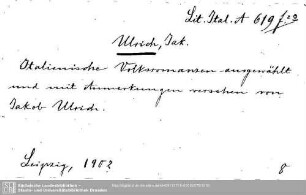 Lit. Ital. A 619 f 29
Ulrich, Jak.
Italienische Volksromanzen ausgewählt
und mit Anmerkungen versehen von
Jakob Ulrich.
Leipzig, 1902
8
Sächsische Landesbibliothek -
Staats- und Universitätsbibliothek Dresden